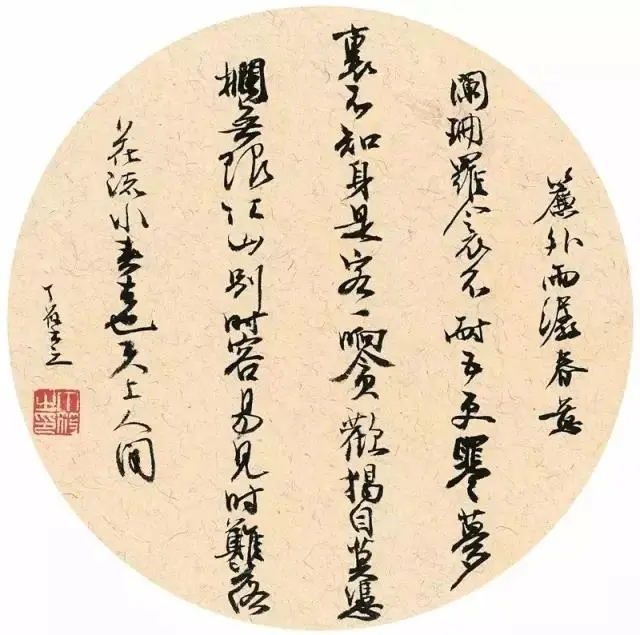 簾外雨潺春意
闌珊羅衾不耐五更寒夢
裏不知身是客一晌貪歡獨自莫憑
欄無限江山別時容易見時難落
花流水春去也天上人間